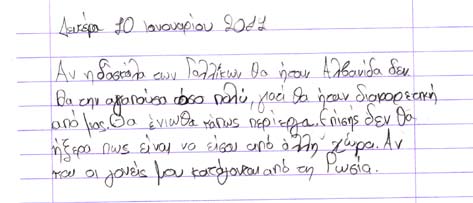 Δευτέρα 10 Ιανουαρίου 2011
Αν η δασκάλα των Γαλλικών θα ήταν Αλβανίδα δεν
θα την αγαπούσα τόσο πολύ, γιατί θα ήταν διαφορετική
από μας. Θα ένιωθα κάπως περίεργα. Επίσης δεν θα
ήξερα πως είναι να είσαι από άλλη χώρα. Αν
και οι γονείς μου κατάγονται από τη Ρωσία.